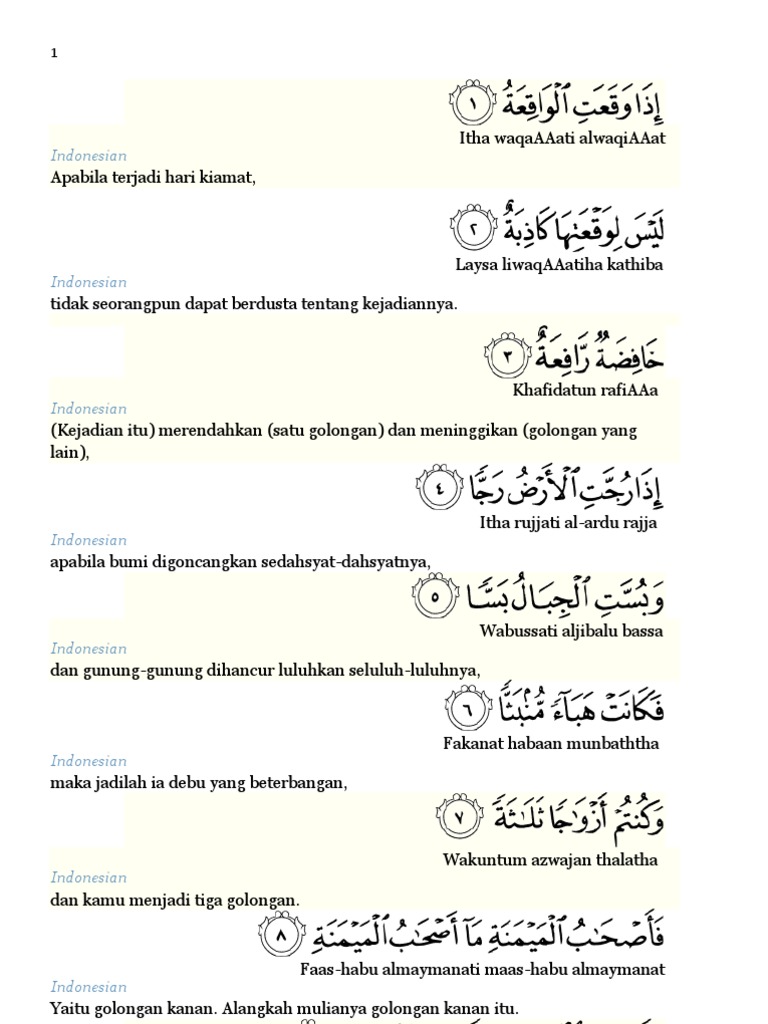 1
إِذَا وَقَعَتِ ٱلْوَاقِعَةُ ١
Itha waqaAAati alwaqiAAat
Indonesian
Apabila terjadi hari kiamat,
لَيْسَ لِوَقْعَتِهَا كَاذِبَةٌ ٢
Laysa liwaqAAatiha kathiba
Indonesian
tidak seorangpun dapat berdusta tentang kejadiannya.
خَافِضَةٌ رَّافِعَةٌ ٣
Khafidatun rafiAAa
Indonesian
(Kejadian itu) merendahkan (satu golongan) dan meninggikan (golongan yang
lain),
إِذَا رُجَّتِ ٱلْأَرْضُ رَجًّا ٤
Itha rujjati al-ardu rajja
Indonesian
apabila bumi digoncangkan sedahsyat-dahsyatnya,
وَبُسَّتِ ٱلْجِبَالُ بَسًّا ٥
Wabussati aljibalu bassa
Indonesian
dan gunung-gunung dihancur luluhkan seluluh-luluhnya,
فَكَانَتْ هَبَآءً مُّنۢبَثًّا ٦
Fakanat habaan munbaththa
Indonesian
maka jadilah ia debu yang beterbangan,
وَكُنتُمْ أَزْوَٰجًا ثَلَـٰثَةً ٧
Wakuntum azwajan thalatha
Indonesian
dan kamu menjadi tiga golongan.
فَأَصْحَـٰبُ ٱلْمَيْمَنَةِ مَآ أَصْحَـٰبُ ٱلْمَيْمَنَةِ ٨
Faas-habu almaymanati maas-habu almaymanat
Indonesian
Yaitu golongan kanan. Alangkah mulianya golongan kanan itu.